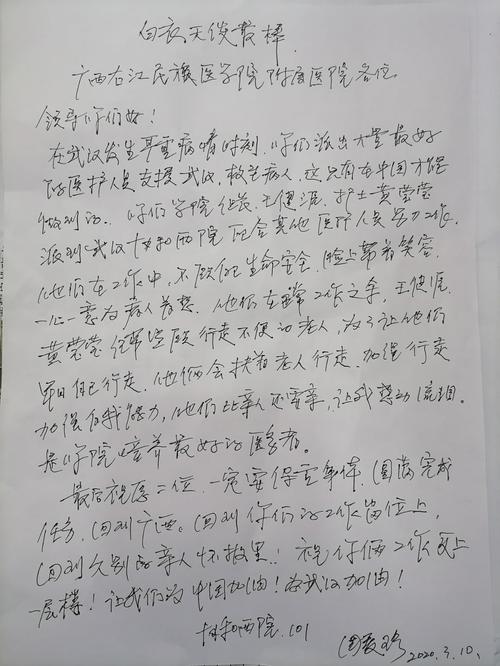 白衣天使最棒
广西右江民族医学院附属医院各位
领导你们好！
在武汉发生严重病情时刻．你们派出大量最好
的医护人员支援武汉．救苦病人．这只有在中国才能
做到的． 你们学院组长．王健涯．护士黄莹莹
派到武汉协和西院配合其他医护人员努力工作．
他们在工作中．不顾自己生命安全．脸上带着笑容．
一心一意为病人着想． 他们在日常工作之手．王健涯．
黄莹莹经常照顾行走不便的老人．为了让他们
早日自己行走．他们俩会扶着老人行走．加强行走
加强自我能力，他们比亲人还要亲，让我感动流泪。
是你学院培养最好的医务者。
最后祝愿二位．一定要保重身体．圆满完成
任务．回到广西。回到你们的工作岗位上，
回到久别的亲人怀抱里！祝你俩工作更上
一层楼！让我们为中国加油！为武汉加油！
协和西院．101
2020.3.10．